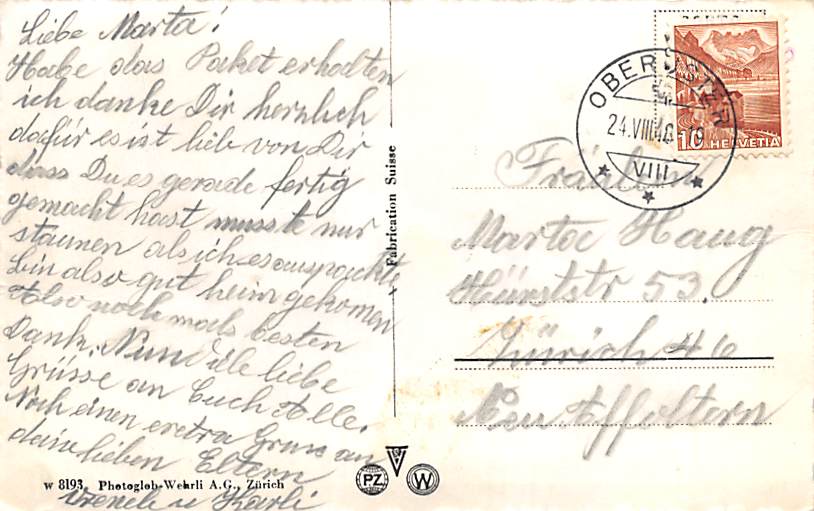 Liebe Marta!
Habe das Paket erhalten
ich danke Dir herzlich
dafür es ist lieb von Dir
dass Du es gerade fertig
gemacht hast musste nur
staunen als ich es auspackte
bin also gut heim gekomen
Also noch mals besten
Dank. Nun viele liebe
Grüsse an Euch Alle.
Noch einen extra Gruss an
deine lieben Eltern
Vreneli u Karli
W 8193 Photoglob-Wehrli A.G., Zürich
Fabrication Suisse
PZ
W
OBERUSTER
24.VIII.40 19
VIII
10 HELVETIA
Fräulein
Marta Haug
53.
Zürich 46
Neu Affoltern